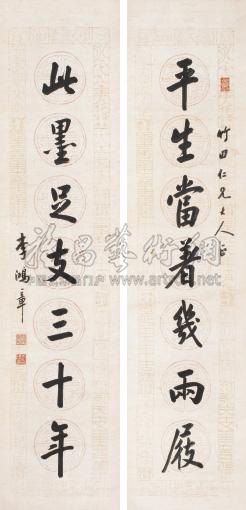 竹田仁兄大人正
平生當著幾兩屐
此墨足支三十年
李鴻章
雅昌藝術網